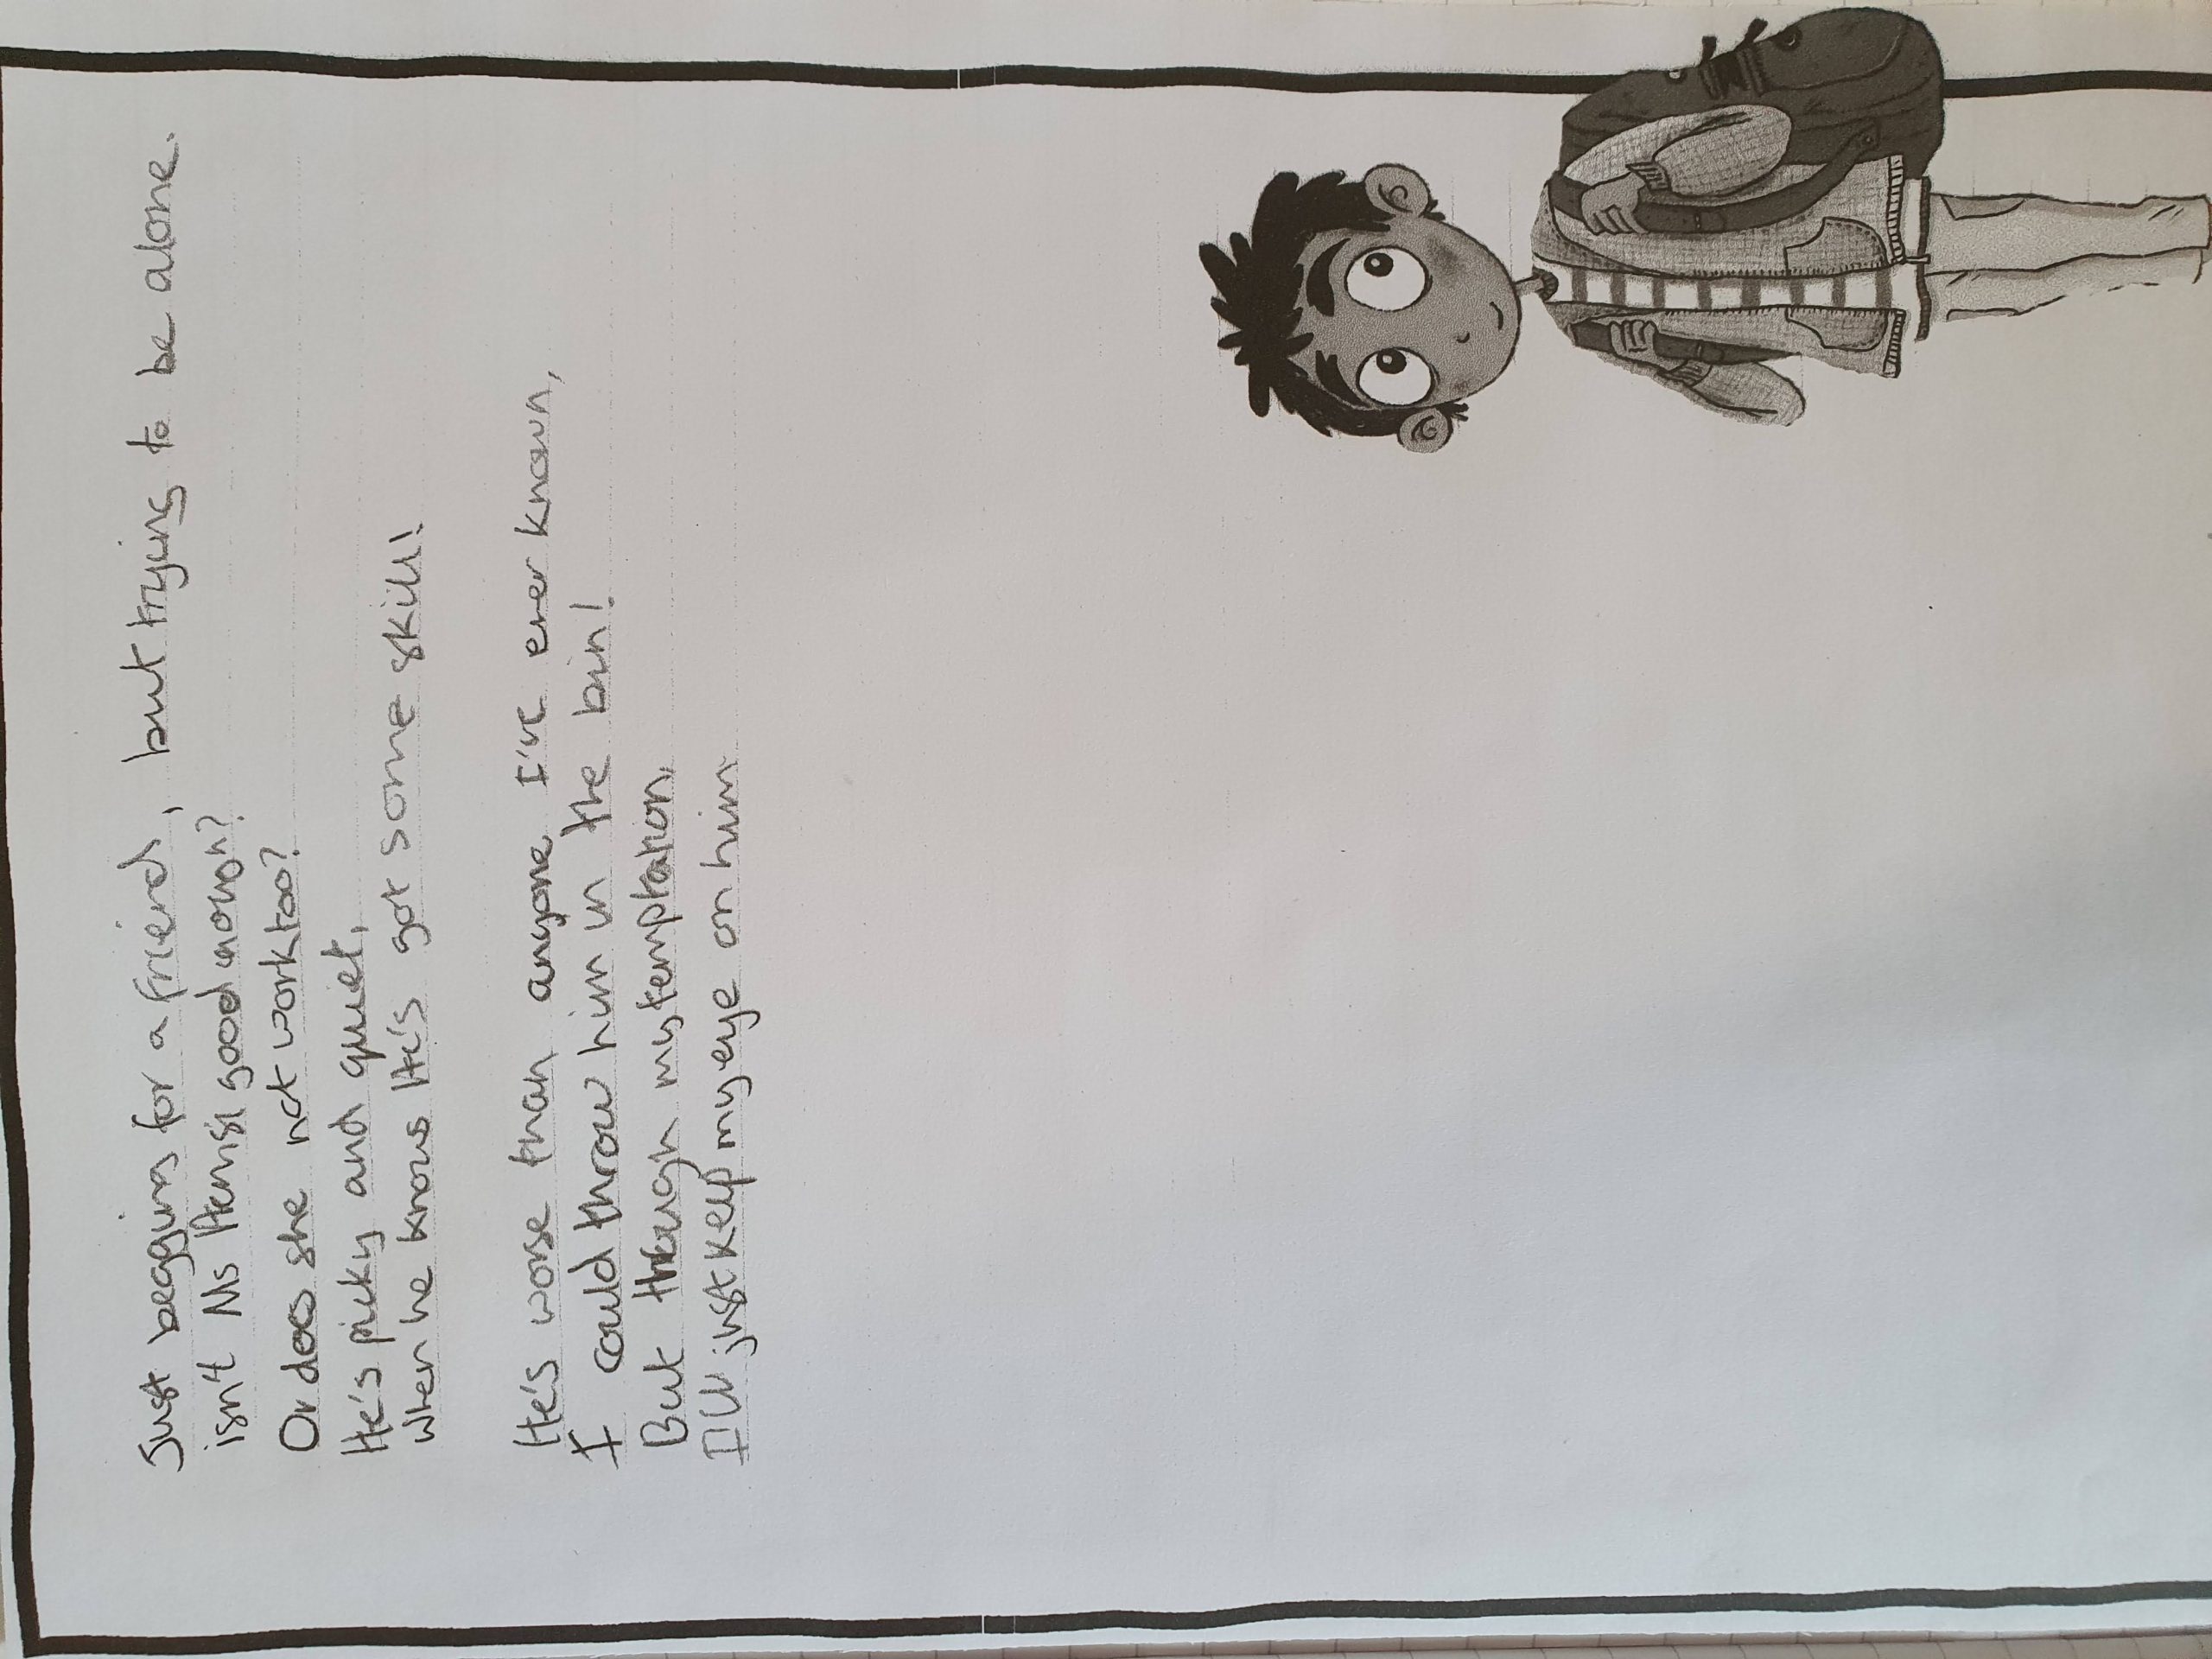 Just begging for a friend, but trying to be alone.
isn't Ms Hemsl good enough?
Or does she not work too?
He's picky and quiet,
When he knows He's got some skill!
He's worse than anyone I've ever known,
I could throw him in the bin!
But through my temptation,
I'll just keep my eye on him